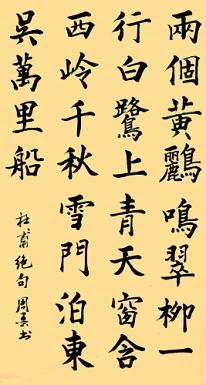 兩個黃鸝鳴翠柳一
行白鷺上青天窗含
西岭千秋雪門泊東
吳萬里船
杜甫絕句 周书